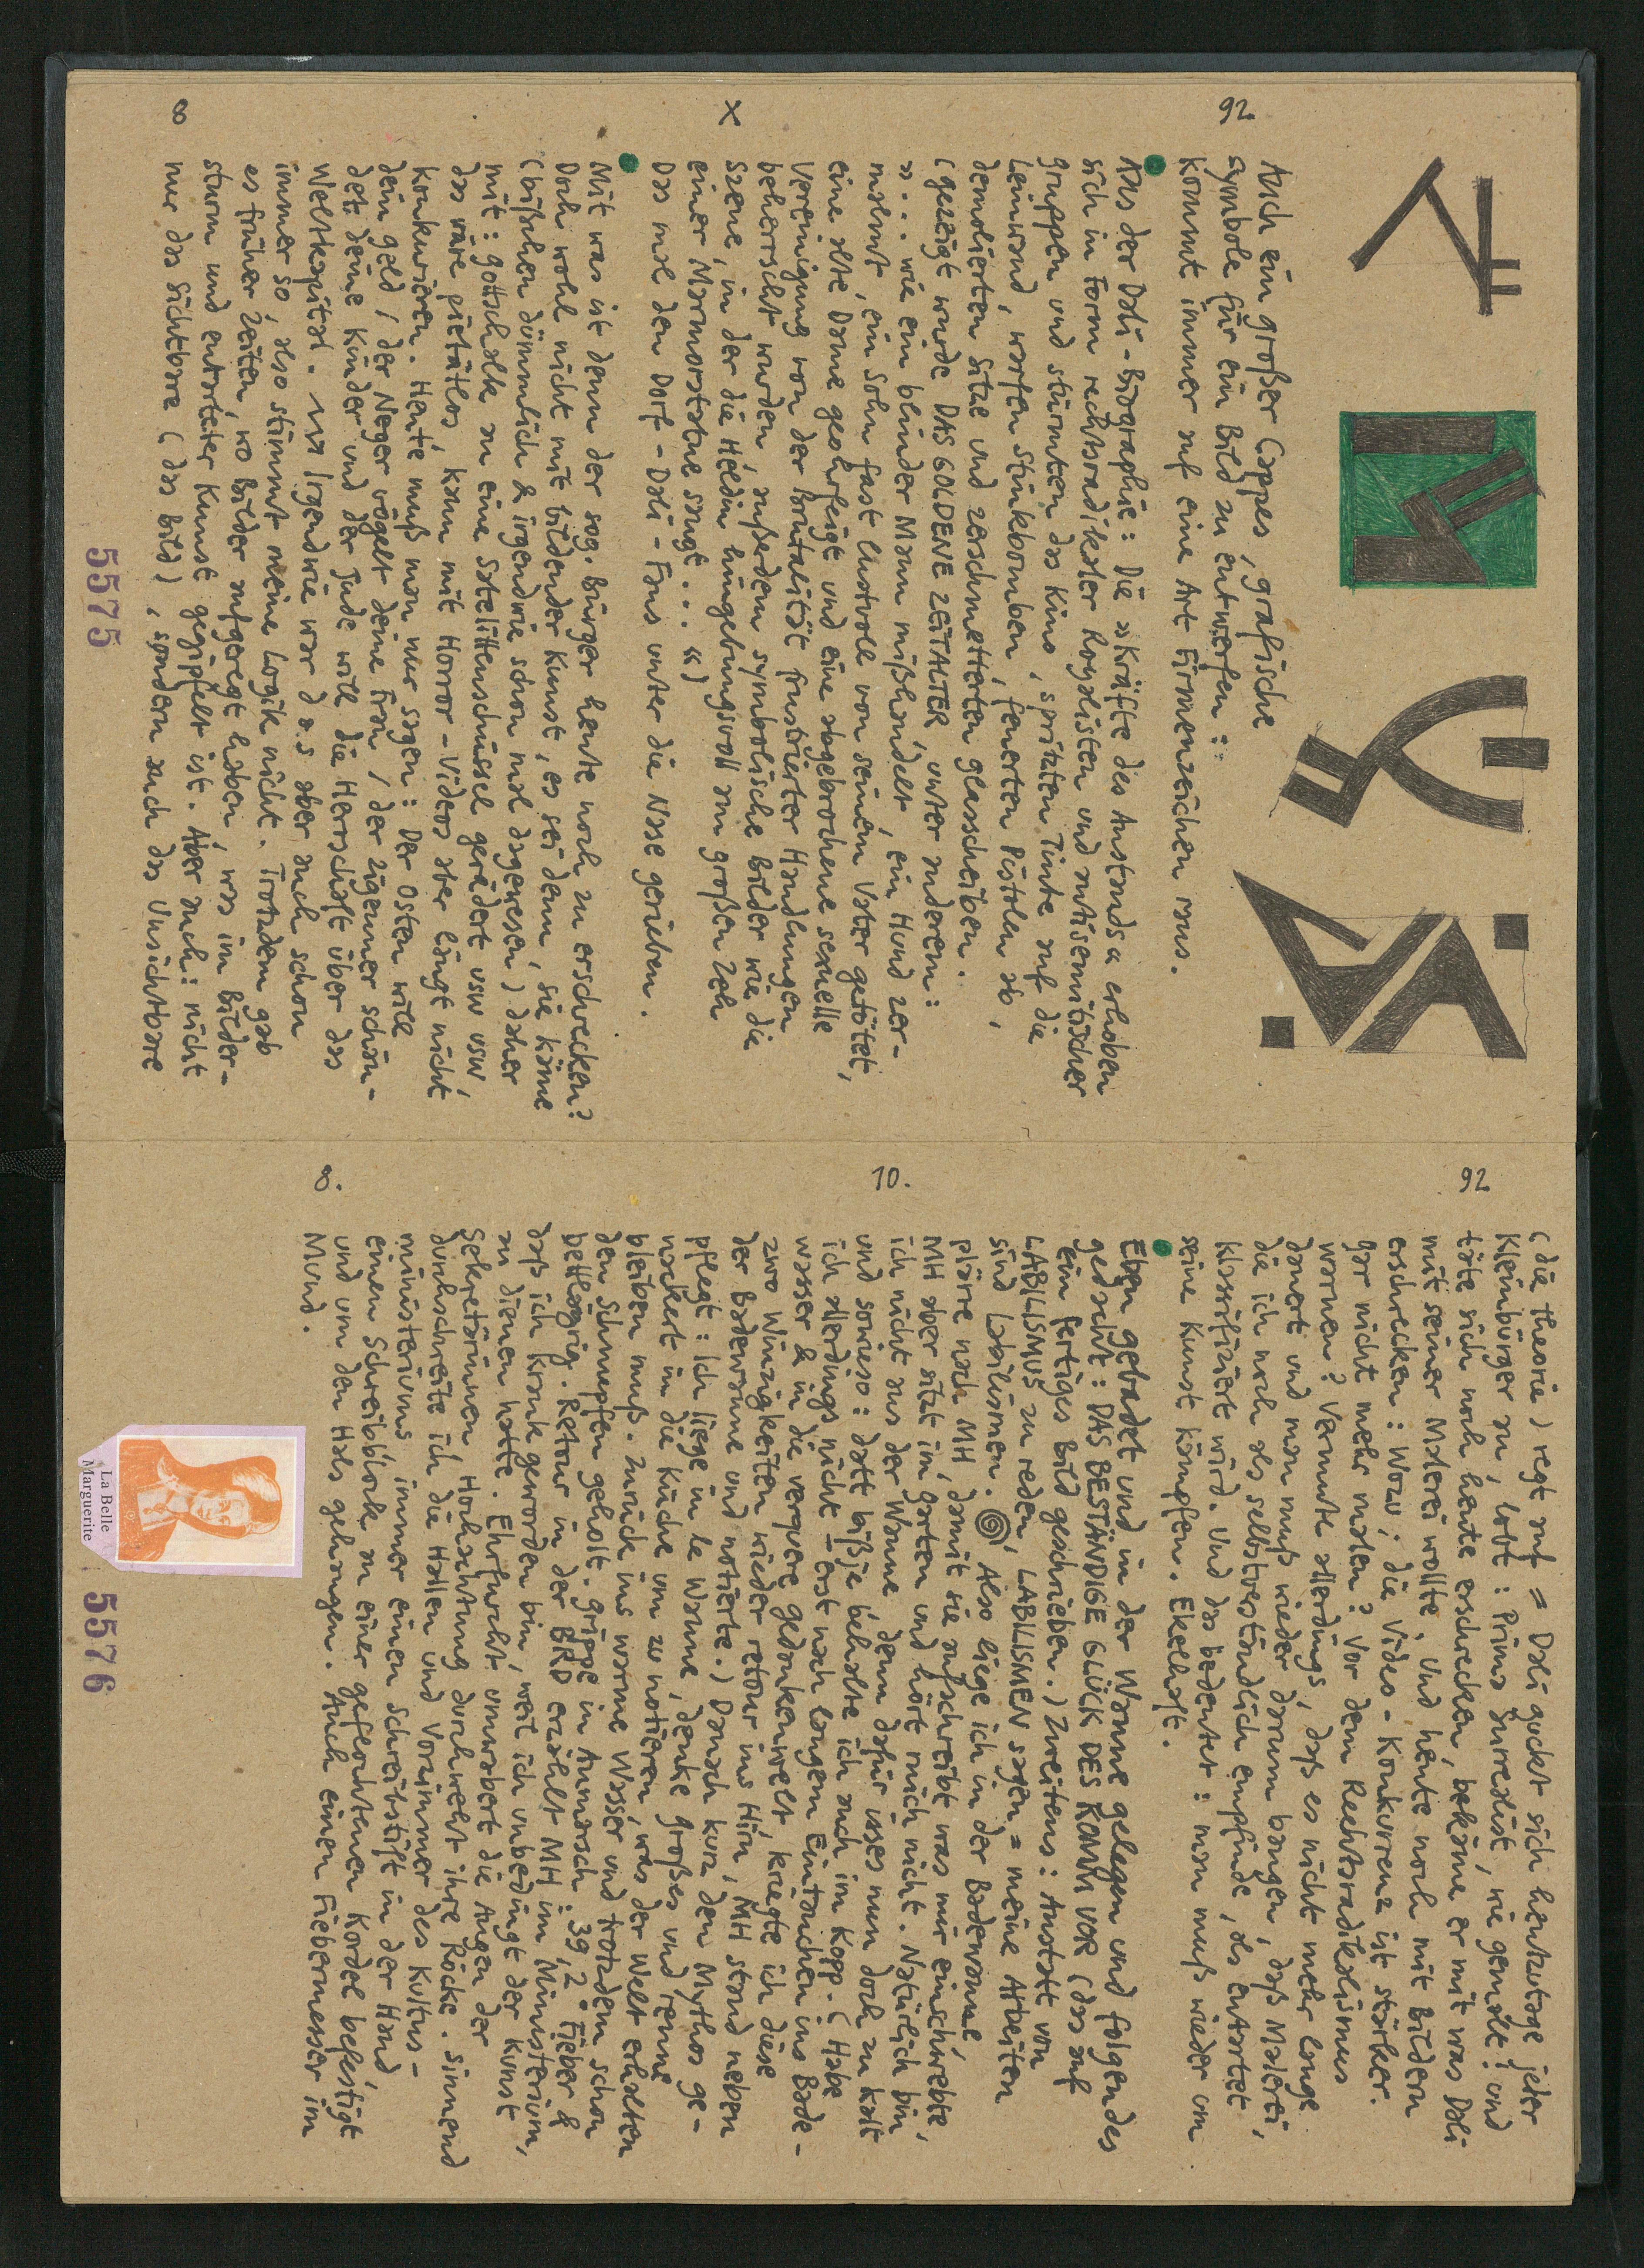 8
X
92
Auch ein großer Cappes, grafische
Symbole für ein Bild zu entwerfen:
kommt immer auf eine Art Firmenzeichen raus.
Aus der Dali-Biographie: Die »Kräfte des Anstands« erhoben
sich in Form rechtsradikaler Royalisten und antisemitischer
gruppen und stürmten das Kino, spritzten Tinte auf die
Leinwand, warfen Stinkbomben, feuerten Pistolen ab,
demolierten Sitze und zerschmetterten glasscheiben.
(gezeigt wurde DAS GOLDENE ZEITALTER, unter anderem:
»... wie ein blinder Mann mißhandelt, ein Hund zer-
malmt, ein Sohn fast lustvoll von seinem Vater getötet,
eine alte Dame geohrfeigt und eine abgebrochene sexuelle
Vereinigung von der Brutalität frustrierter Handlungen
beherrscht wurden, außerdem symbolische Bilder wie die
Szene, in der die Heldin hingebungsvoll am großen Zeh
einer Marmorstatue saugt...«)
Das mal den Dorf-Dali-Fans unter die Nase gerieben.
Mit was ist denn der sog. Bürger heute noch zu erschrecken?
Doch wohl nicht mit bildender Kunst, es sei denn, sie käme
(bißchen dümmlich & irgendwie schon mal dagewesen) daher
mit: gottschalk an eine Satelittenschüssel gerädert usw usw,
das wäre pietätlos, kann mit Horror-Videos aber längt nicht
konkurrieren. Heute muß man nur sagen: Der Osten will
dein geld / der Neger vögelt deine Frau / der Zigeuner schän-
det deine Kinder und der Jude will die Herrschaft über das
Weltkapital. Irgendwie war das aber auch schon
immer so, also stimmt meine Logik nicht. Trotzdem gab
es früher Zeiten, wo Bilder aufgeregt haben, was im Bilder-
sturm und entarteter Kunst gegipfelt ist. Aber auch: nicht
nur das Sichtbare (das Bild), sondern auch das Unsichtbare
5575
8.
10.
92
(die Theorie) regt auf = Dali guckt sich heutzutage jeder
Kleinbürger an, lobt: Prima Surrealist, wie gemalt! und
täte sich noch heute erschrecken, bekäme er mit was Dali
mit seiner Malerei wollte. Und heute noch mit Bildern
erschrecken: Wozu; die Video-Konkurrenz ist stärker.
gar nicht mehr malen? Vor dem Rechtsradikalismus
warnen? Vermute allerdings, daß es nicht mehr lange
dauert und man muß wieder darum bangen, daß Malerei,
die ich noch als selbstverständlich empfinde, als entartet
klassifiziert wird. Und das bedeutet: man muß wieder um
seine Kunst kämpfen. Ekelhaft.
Eben gebadet und in der Wanne gelegen und folgendes
gedacht: DAS BESTÄNDIGE GLÜCK DES KOMM VOR (das auf
ein fertiges Bild geschrieben.) Zweitens: Anstatt von
LABILISMUS zu reden, LABILISMEN sagen = meine Arbeiten
sind Labilismen. Also liege ich in der Badewanne,
plärre nach MH, damit sie aufschreibt was mir einschwebte,
MH aber sitzt im garten und hört mich nicht. Natürlich bin
ich nicht aus der Wanne, denn dafür isses nun doch zu kalt
und sowieso: datt bißje behalte ich auch im Kopp. (Habe
ich allerdings nicht – erst nach langem Eintauchen ins Bade-
wasser & in die verquere gedankenwelt, kriegte ich diese
zwo Winzigkeiten wieder retour ins Hirn, MH stand neben
der Badewanne und notierte.) Danach kurz den Mythos ge-
pflegt: Ich liege in le Wanne, denke großes und renne
nackert in die Küche um zu notieren, was der Welt erhalten
bleiben muß. Zurück ins warme Wasser und trotzdem schon
den Schnupfen geholt. grippe in Anmarsch. 39,2° Fieber &
bettlägrig. Retour in der BRD erzählt MH im Ministerium,
daß ich krank geworden bin, weil ich unbedingt der Kunst
zu dienen hatte. Ehrfurcht umwabert die Augen der
Sekretärinnen, Hochachtung durchweht ihre Röcke. Sinnend
durchschreite ich die Hallen und Vorzimmer des Kultus-
ministeriums immer einen Schreibstift in der Hand,
einen Schreibblock an einer geflochtenen Kordel befestigt
und um den Hals gehangen. Auch einen Fiebermesser im
Mund.
La Belle
Marguerite
5576